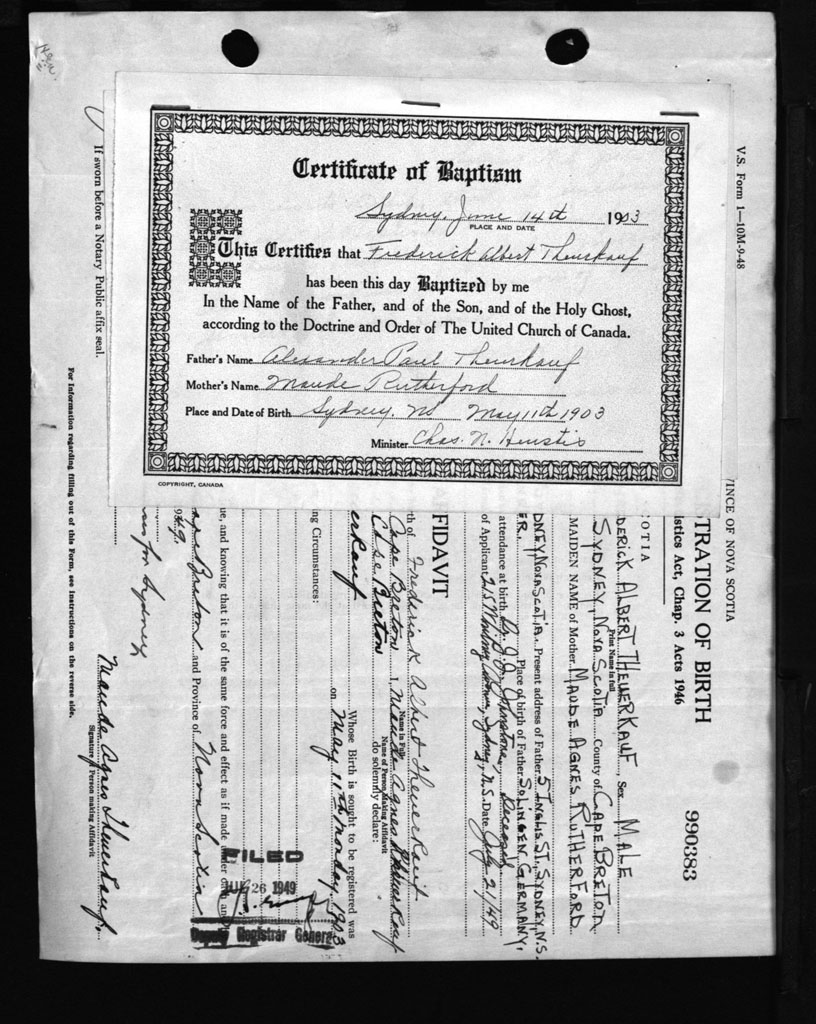 Certificate of Baptism
Sydney, June 14th 1903
PLACE AND DATE
This Certifies that Frederick Albert Theurkauf
has been this day Baptized by me
In the Name of the Father, and of the Son, and of the Holy Ghost,
according to the Doctrine and Order of The United Church of Canada.
Father's Name Alexander Paul Theurkauf
Mother's Name Maude Rutherford
Place and Date of Birth Sydney, NS May 11th 1903
Minister Chas. N. Heustis
COPYRIGHT, CANADA
V.S. Form 1—10M-9-48
VINCE OF NOVA SCOTIA
TRATION OF BIRTH
990383
istics Act, Chap. 3 Acts 1946
COTIA
DERICK ALBERT THEUERKAUF, Sex MALE
Print Name in full
SYDNEY, NOVA SCOTIA County of CAPE BRETON
MAIDEN NAME of Mother MAUDE AGNES RUTHERFORD
DNEY, NOVA SCOTIA. Present address of Father 5 INGLIS ST., SYDNEY, N.S.
ER. Place of birth of Father SOLINGEN GERMANY.
attendance at birth Deceased
of Applicant Sydney, N.S. Date July 21/49
FIDAVIT
th of Frederick Albert Theuerkauf
Name in Full
Cape Breton I, Maude Agnes Theuerkauf
Name of Person Making Affidavit
Cape Breton do solemnly declare:
erkauf Whose Birth is sought to be registered was
on May 11th Monday 1903
ng Circumstances:
ue, and knowing that it is of the same force and effect as if made under oath and
Cape Breton and Province of Nova Scotia
949.
FILED
26 1949
Deputy Registrar General
for Sydney
Maude Agnes Theuerkauf
Signature of Person making Affidavit
If sworn before a Notary Public affix seal.
For Information regarding filling out of this Form, see Instructions on the reverse side.